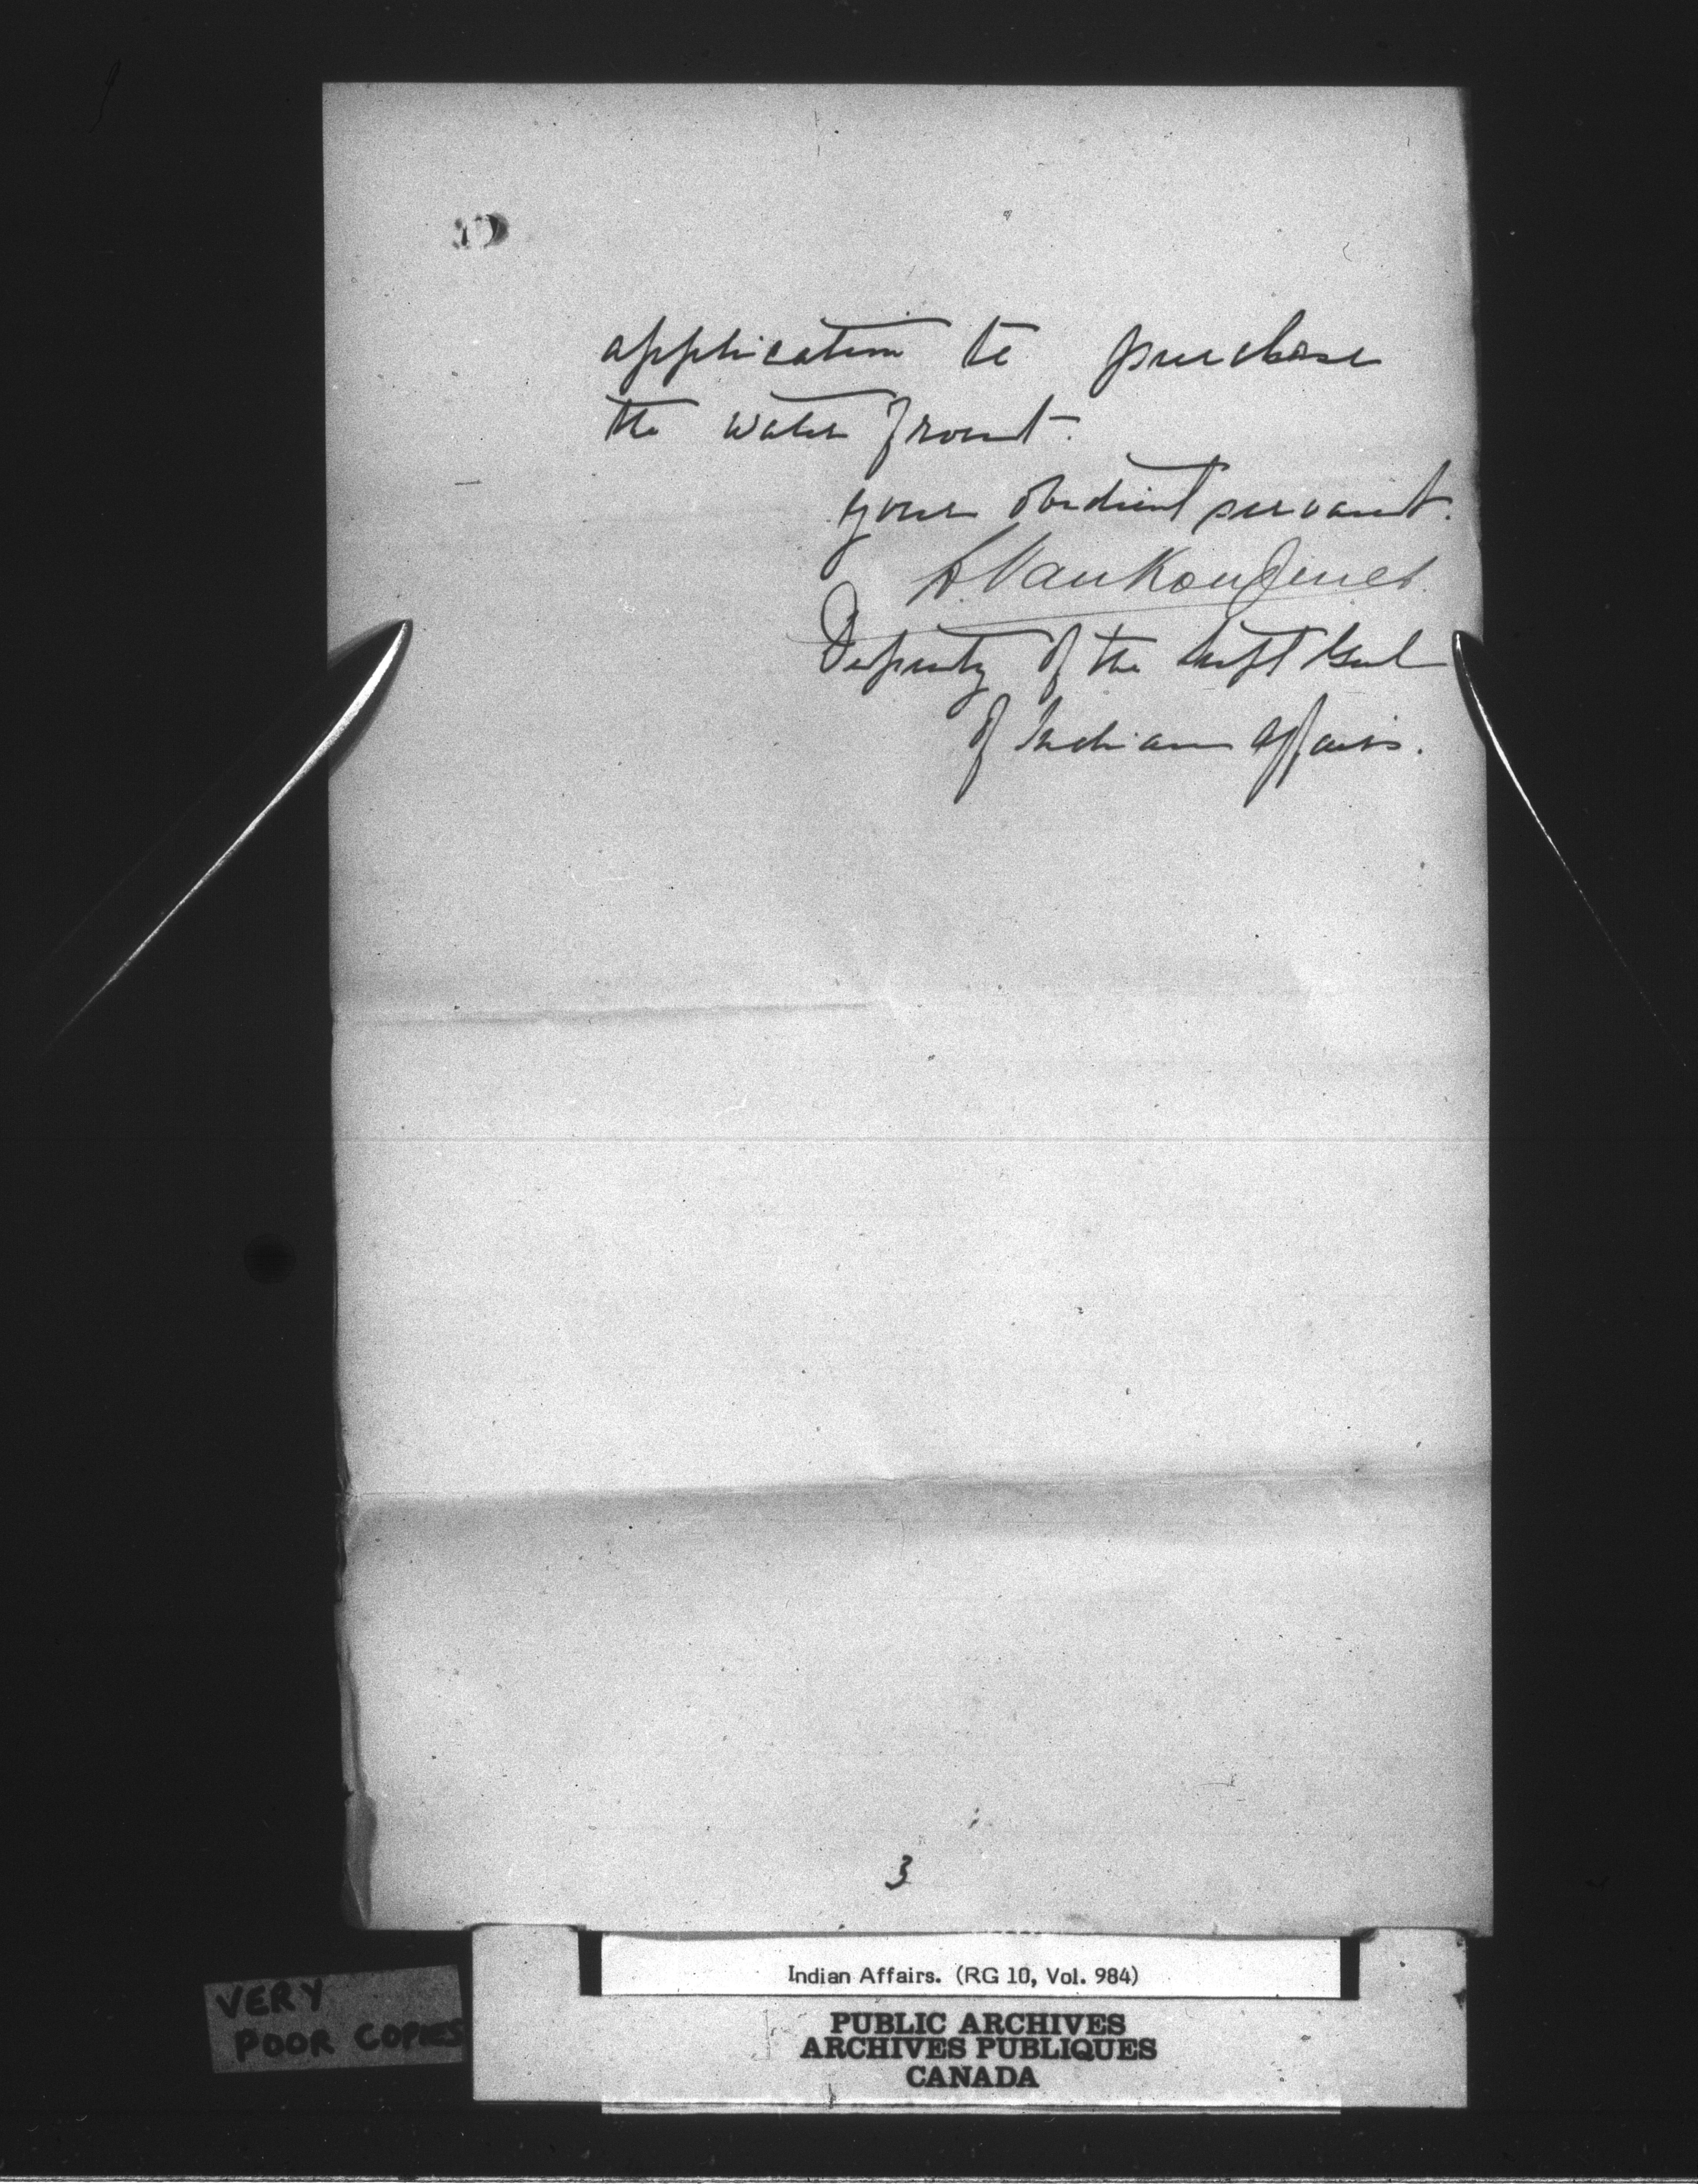 application to purchase
the water front.
your obedient servant.
L. VanKoughnet.
Deputy of the Supt Genl
of Indian Affairs.
3
Indian Affairs. (RG 10, Vol. 984)
PUBLIC ARCHIVES
ARCHIVES PUBLIQUES
CANADA
VERY
POOR COPIES